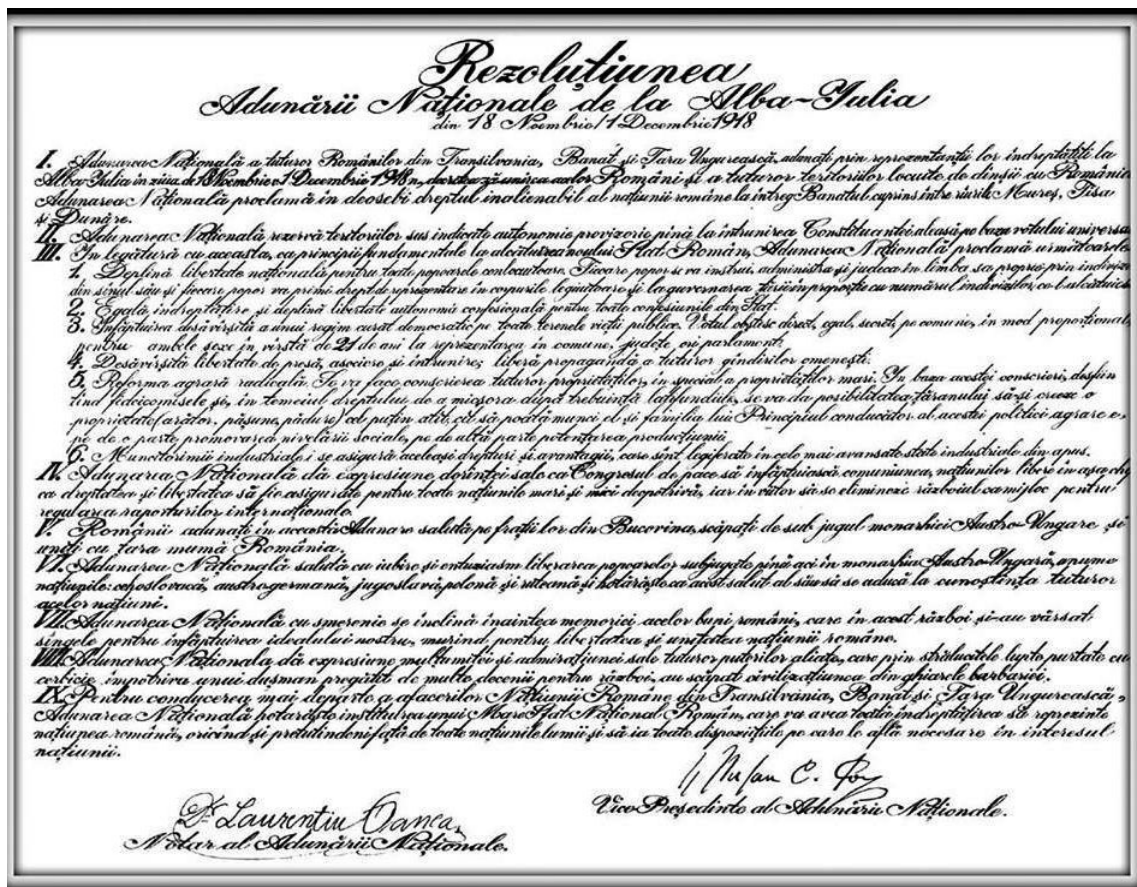 Rezoluțiunea
Adunării Naționale de la Alba-Iulia
din 18 Noembrie/1 Decembrie 1918
I. Adunarea Națională a tuturor Românilor din Transilvania, Banat și Țara Ungurească, adunați prin reprezentanții lor îndreptățiți la
Alba-Iulia în ziua de 18 Noembrie/1 Decembrie 1918, decretează unirea acelor Români și a tuturor teritoriilor locuite de dînșii cu România.
Adunarea Națională proclamă în deosebi dreptul inalienabil al națiunii române la întreg Banatul cuprins între rîurile Mureș, Tisa
și Dunăre.
II. Adunarea Națională rezervă teritoriilor sus indicate autonomie provizorie pînă la întrunirea Constituantei aleasă pe baza votului universal
III. În legătură cu aceasta, ca principii fundamentale la alcătuirea noului Stat Român, Adunarea Națională proclamă următoarele:
1. Deplină libertate națională pentru toate popoarele conlocuitoare. Fiecare popor se va instrui, administra și judeca în limba sa proprie prin indivizi
din sînul său și fiecare popor va primi drept de reprezentare în corpurile legiuitoare și la guvernarea țării în proporție cu numărul indivizilor ce-l alcătuiesc
2. Egală îndreptățire și deplină libertate autonomă confesională pentru toate confesiunile din Stat.
3. Înfăptuirea desăvîrșită a unui regim curat democratic pe toate terenele vieții publice. Votul obștesc direct, egal, secret, pe comune, în mod proporțional,
pentru ambele sexe în vîrstă de 21 de ani la reprezentarea în comune, județe ori parlament.
4. Desăvîrșită libertate de presă, asociere și întrunire; liberă propagandă a tuturor gîndirilor omenești.
5. Reforma agrară radicală. Se va face conscrierea tuturor proprietăților, în special a proprietăților mari. În baza acestei conscrieri, desfiin
țînd fideicomisele și, în temeiul dreptului de a micșora după trebuință latifundiile, se va da posibilitatea țăranului să-și creeze o
proprietate (arător, pășune, pădure) cel puțin atît, cît să poată munci el și familia lui. Principiul conducător al acestei politici agrare e,
pe de o parte promovarea nivelării sociale, pe de altă parte potențarea producțiunii
6. Muncitorimii industriale i se asigură aceleași drepturi și avantagii, care sînt legiferate în cele mai avansate state industriale din apus.
IV. Adunarea Națională dă expresiune dorinței sale ca Congresul de pace să înfăptuiască comuniunea națiunilor libere în așa chip
ca dreptatea și libertatea să fie asigurate pentru toate națiunile mari și mici deopotrivă, iar în viitor să se elimineze războiul ca mijloc pentru
regularea raporturilor internaționale.
V. Românii adunați în această Adunare salută pe frații lor din Bucovina, scăpați de sub jugul monarhiei Austro-Ungare și
uniți cu țara mumă România.
VI. Adunarea Națională salută cu iubire și entuziasm liberarea popoarelor subjugate pînă aci în monarhia Austro-Ungară, anume
națiunile: cehoslovacă, austrogermană, jugoslavă, polonă și ruteană și hotărăște ca acest salut al său să se aducă la cunoștința tuturor
acelor națiuni.
VII. Adunarea Națională cu smerenie se închină înaintea memoriei acelor bupi români, care în acest război și-au vărsat
sîngele pentru înfăptuirea idealului nostru, murind pentru libertatea și unitatea națiunii române.
VIII. Adunarea Naționala dă expresiune mulțumitei și admirațiunei sale tuturor puterilor aliate, care prin strălucitele lupte purtate cu
cerbicie împotriva unui dușman pregătit de multe decenii pentru război, au scăpat civilizațiunea din ghiarele barbariei.
IX. Pentru conducerea mai departe a afacerilor Națiunii Române din Transilvănia, Banat și Țara Ungurească,
Adunarea Națională hotărăște instituirea unui Mare Sfat Național Român, care va avea toată îndreptățirea să reprezinte
națiunea română, oricînd și pretutindeni față de toate națiunile lumii și să ia toate dispozițiile pe care le află necesare în interesul
națiunii.
Dr Laurențiu Oanea,
Notar al Adunării Naționale.
Vice Președinte al Adunării Naționale.